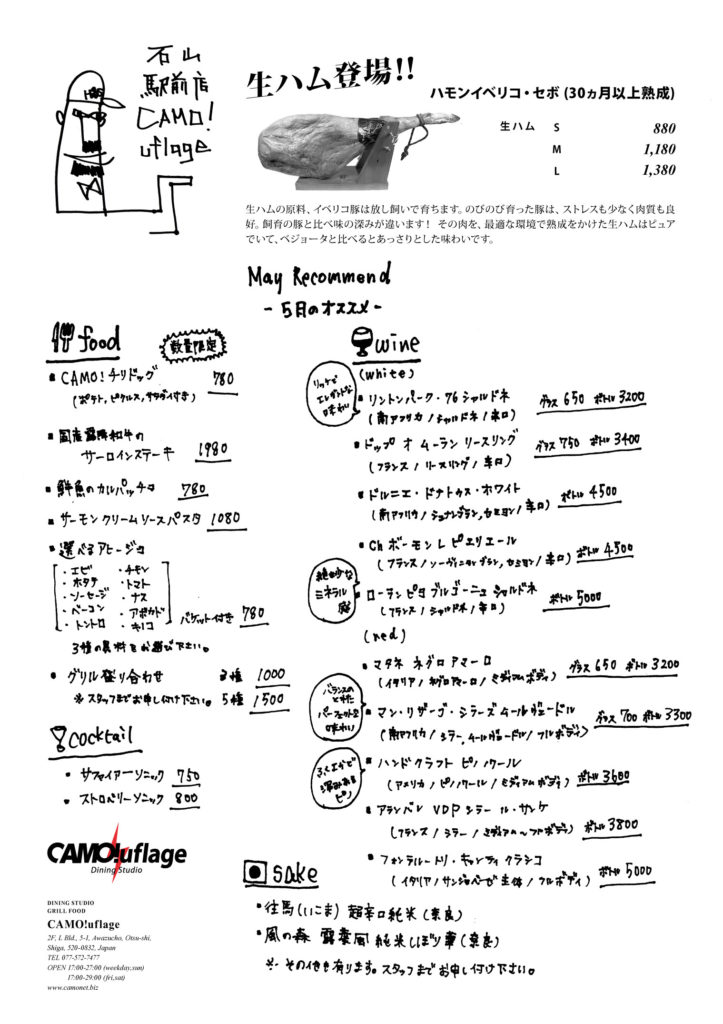 石山
駅前店
CAMO!
uflage
生ハム登場!!
ハモンイベリコ・セボ (30ヵ月以上熟成)
生ハム S 880
M 1,180
L 1,380
生ハムの原料、イベリコ豚は放し飼いで育ちます。のびのび育った豚は、ストレスも少なく肉質も良
好。飼育の豚と比べ味の深みが違います！ その肉を、最適な環境で熟成をかけた生ハムはピュア
でいて、ベジョータと比べるとあっさりとした味わいです。
May Recommend
- 5月のオススメ -
food
数量限定
・CAMO! チリドッグ 780
(ポテト, ピクルス, サラダ付き)
・国産霧降和牛の
サーロインステーキ 1980
・鮮魚のカルパッチョ 780
・サーモンクリームソースパスタ 1080
・選べるアヒージョ
・エビ ・チキン
・ホタテ ・トマト
・ソーセージ ・ナス
・ベーコン ・アボカド
・トントロ ・キノコ
バケット付き 780
3種の具材をお選び下さい。
・グリル盛り合わせ 3種 1000
※スタッフまでお申し付け下さい。 5種 1500
cocktail
・サファイアーソニック 750
・ストロベリーソニック 800
wine
(white)
リッチで
エレガントな
味わい
・リントンパーク・76 シャルドネ グラス 650 ボトル 3200
(南アフリカ / シャルドネ / 辛口)
・ドップ オ ムーラン リースリング グラス 750 ボトル 3400
(フランス / リースリング / 辛口)
・ドルニエ・ドナトゥス・ホワイト ボトル 4500
(南アフリカ / シュナンブラン, セミヨン / 辛口)
・Ch ボーモン レ ピエリエール ボトル 4500
(フランス / ソーヴィニヨンブラン, セミヨン / 辛口)
絶妙な
ミネラル
感
・ローランピヨ ブルゴーニュ シャルドネ ボトル 5000
(フランス / シャルドネ / 辛口)
(red)
・マタネ ネグロアマーロ グラス 650 ボトル 3200
(イタリア / ネグロアマーロ / ミディアムボディ)
バランスの
とれた
パーフェクトな
味わい
・マン・リザーブ・シラーズ ムールヴェードル グラス 700 ボトル 3300
(南アフリカ / シラー, ムールヴェードル / フルボディ)
ふくよかで
深みある
ピノ
・ハンドクラフト ピノノワール ボトル 3600
(アメリカ / ピノノワール / ミディアムボディ)
・アランパレ VDP シラー ル・サンケ ボトル 3800
(フランス / シラー / ミディアム〜フルボディ)
・フォンテルートリ・キャンティ クラシコ ボトル 5000
(イタリア / サンジョベーゼ主体 / フルボディ)
sake
・往馬(いこま) 超辛口純米(奈良)
・風の森 露葉風 純米しぼり華(奈良)
※ その他も有ります。スタッフまでお申し付け下さい。
CAMO!uflage
Dining Studio
DINING STUDIO
GRILL FOOD
CAMO!uflage
2F, L Bld., 5-1, Awazucho, Otsu-shi,
Shiga, 520-0832, Japan
TEL 077-572-7477
OPEN 17:00-27:00 (weekday,sun)
17:00-29:00 (fri,sat)
www.camonet.biz